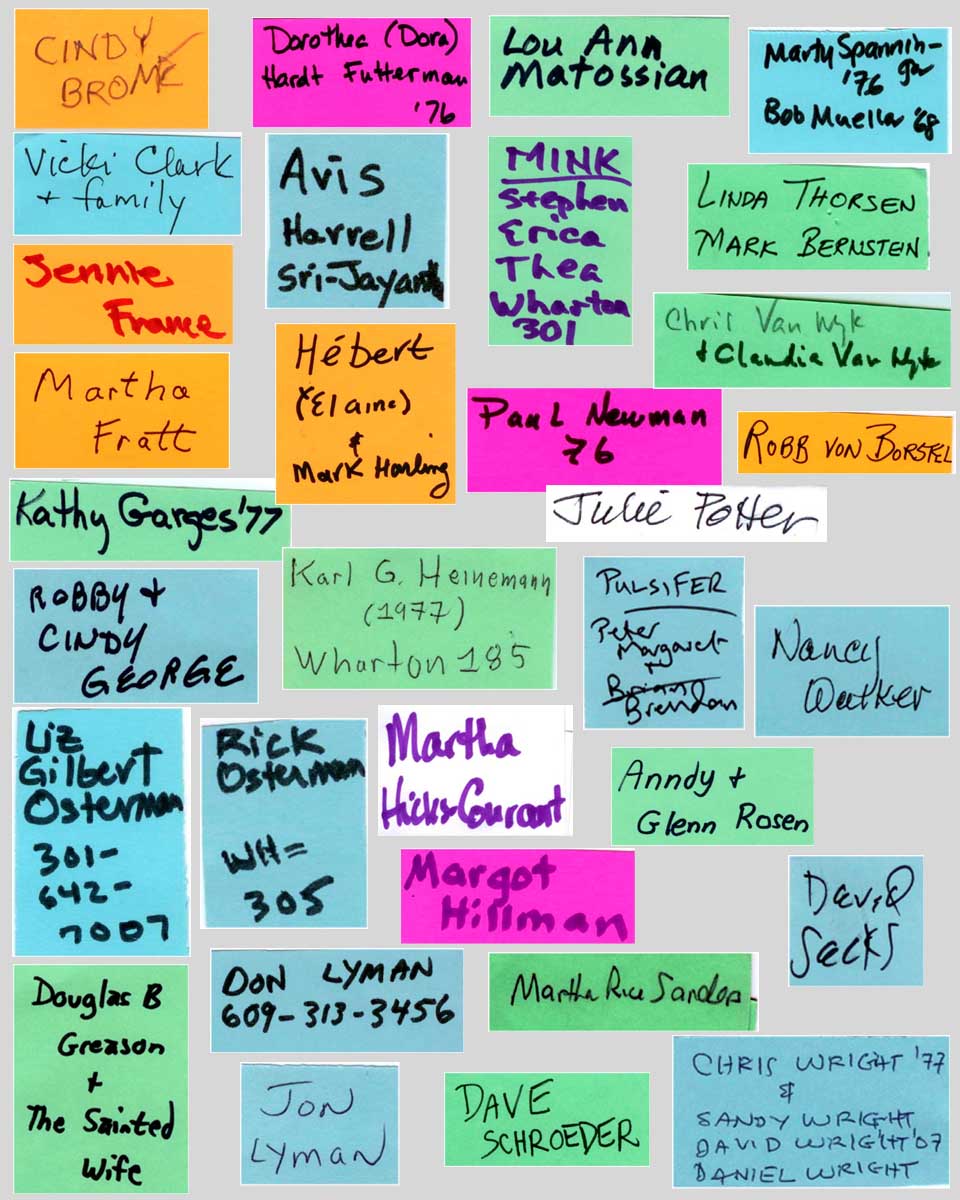 CINDY
BROME
Dorothea (Dora)
Hardt Futterman
'76
Lou Ann
Matossian
Marty Spannin-
'76 ger
Bob Mueller '68
Vicki Clark
+ family
Avis
Harrell
Sri-Jayantha
MINK
Stephen
Erica
Thea
Wharton
301
LINDA THORSEN
MARK BERNSTEIN
Jennie
France
Chris Van Wyk
+ Claudia Van Wyk
Martha
Fratt
Hébert
(Elaine)
&
Mark Harling
Paul Newman
76
ROBB VON BORSTEL
Kathy Garges '77
Julie Potter
ROBBY +
CINDY
GEORGE
Karl G. Heinemann
(1977)
Wharton 185
PULSIFER
Peter
Margaret
+
Brian
Brendan
Nancy
Walker
Liz
Gilbert
Osterman
301-
642-
7007
Rick
Osterman
WH=
305
Martha
Hicks-Courant
Anndy +
Glenn Rosen
Margot
Hillman
David
Sacks
Douglas B
Greason
+
The Sainted
Wife
DON LYMAN
609-313-3456
Martha Rice Sanders
JON
LYMAN
DAVE
SCHROEDER
CHRIS WRIGHT '77
&
SANDY WRIGHT
DAVID WRIGHT '07
DANIEL WRIGHT